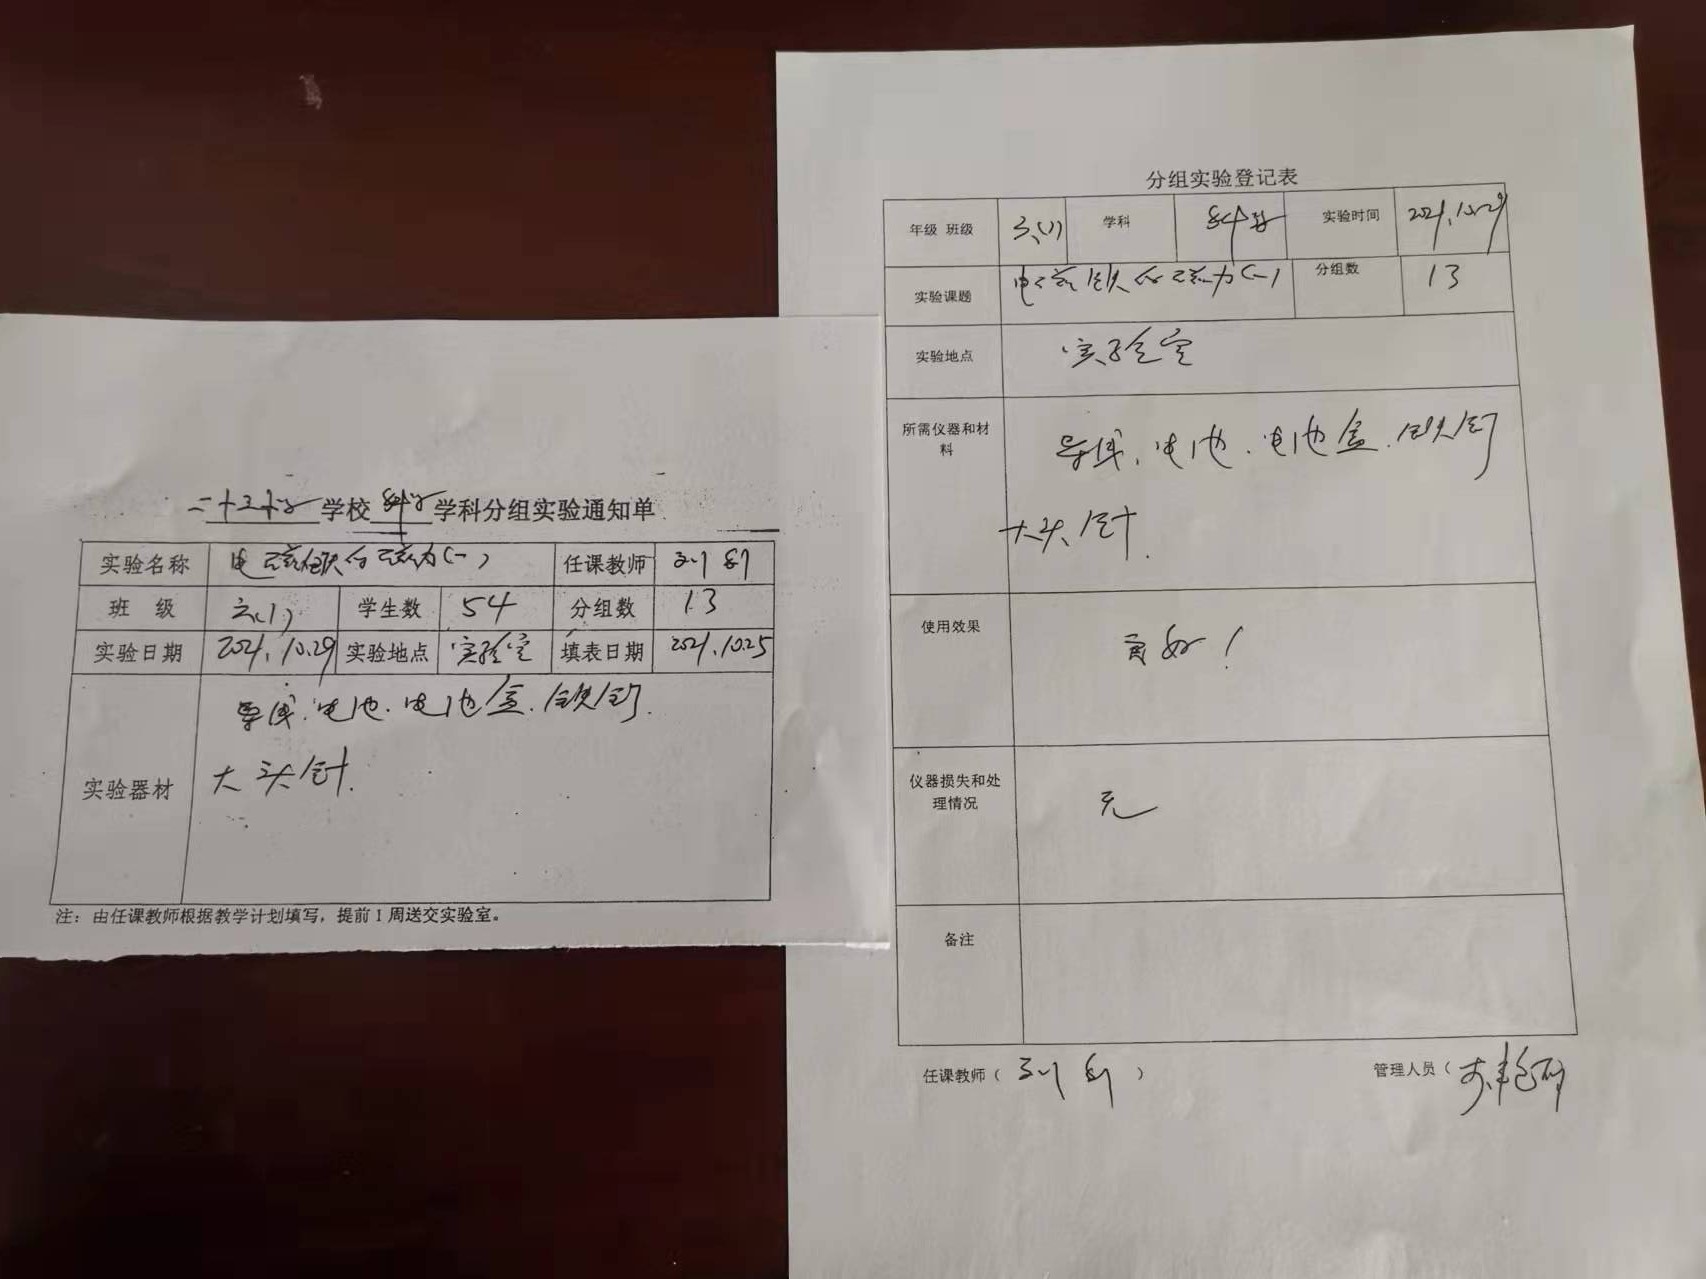 二十三小学校科学学科分组实验通知单
实验名称 电磁铁的磁力(一) 任课教师
班级 六(1) 学生数 54 分组数 13
实验日期 2021.10.29 实验地点 实验室 填表日期 2021.10.25
实验器材 导线.电池.电池盒.铁钉.
大头针.
注：由任课教师根据教学计划填写，提前1周送交实验室。
分组实验登记表
年级 班级 六(1) 学科 科学 实验时间 2021.10.29
实验课题 电磁铁的磁力(一) 分组数 13
实验地点 实验室
所需仪器和材料 导线.电池.电池盒.铁钉
大头针.
使用效果 良好!
仪器损失和处理情况 无
备注
任课教师（ ）
管理人员（